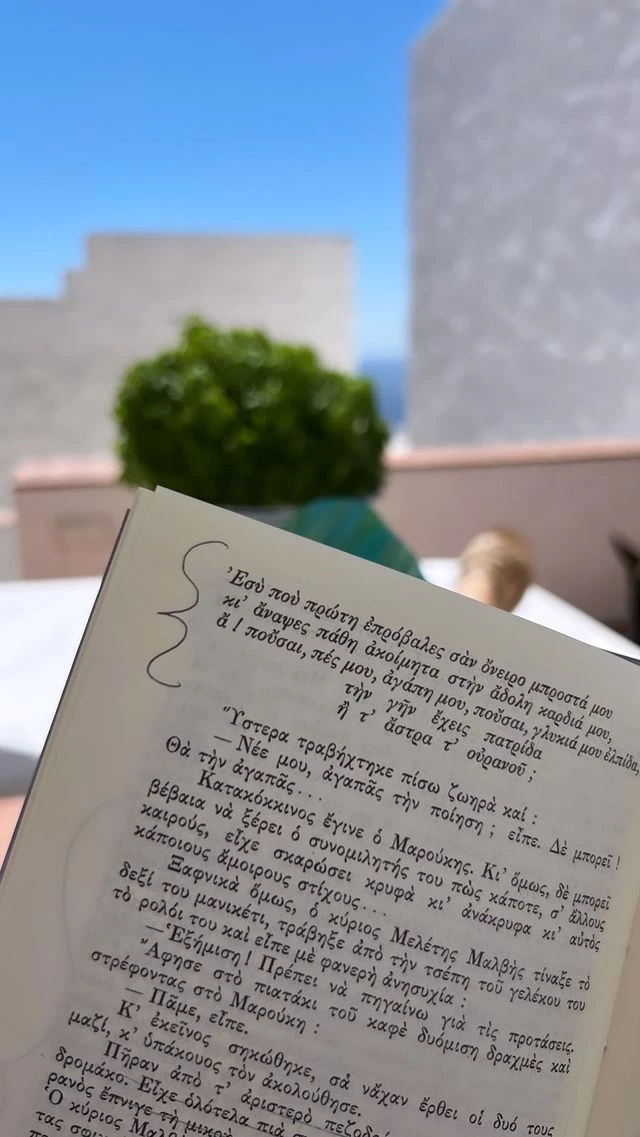 Ἐσὺ ποὺ πρώτη ἐπρόβαλες σὰν ὄνειρο μπροστά μου
κι' ἄναψες πάθη ἀκοίμητα στὴν ἄδολη καρδιά μου,
ἄ! ποῦσαι, πές μου, ἀγάπη μου, ποῦσαι, γλυκιά μου ἐλπίδα,
τὴν γῆν ἔχεις πατρίδα
ἢ τ' ἄστρα τ' οὐρανοῦ;
Ὕστερα τραβήχτηκε πίσω ζωηρὰ καί:
— Νέε μου, ἀγαπᾶς τὴν ποίηση; εἶπε. Δὲ μπορεῖ!
Θὰ τὴν ἀγαπᾶς...
Κατακόκκινος ἔγινε ὁ Μαρούκης. Κι' ὅμως, δὲ μπορεῖ
βέβαια νὰ ξέρει ὁ συνομιλητής του πὼς κάποτε, σ' ἄλλους
καιρούς, εἶχε σκαρώσει κρυφὰ κι' ἀνάκρυφα κι' αὐτὸς
κάποιους ἄμοιρους στίχους...
Ξαφνικὰ ὅμως, ὁ κύριος Μελέτης Μαλβὴς τίναξε τὸ
δεξί του μανικέτι, τράβηξε ἀπὸ τὴν τσέπη τοῦ γελέκου του
τὸ ρολόι του καὶ εἶπε μὲ φανερὴ ἀνησυχία:
— Ἑξήμιση! Πρέπει νὰ πηγαίνω γιὰ τὶς προτάσεις.
Ἄφησε στὸ πιατάκι τοῦ καφὲ δυόμιση δραχμὲς καὶ
στρέφοντας στὸ Μαρούκη:
— Πᾶμε, εἶπε.
Κ' ἐκεῖνος σηκώθηκε, σὰ νἄχαν ἔρθει οἱ δυό τους
μαζί, κ' ὑπάκουος τὸν ἀκολούθησε.
Πῆραν ἀπὸ τ' ἀριστερὸ
δρομάκο. Εἶχε ὁλότελα πιὰ
ρανὸς ἔπνιγε τὴ μικρὴ
Ὁ κύριος
τας